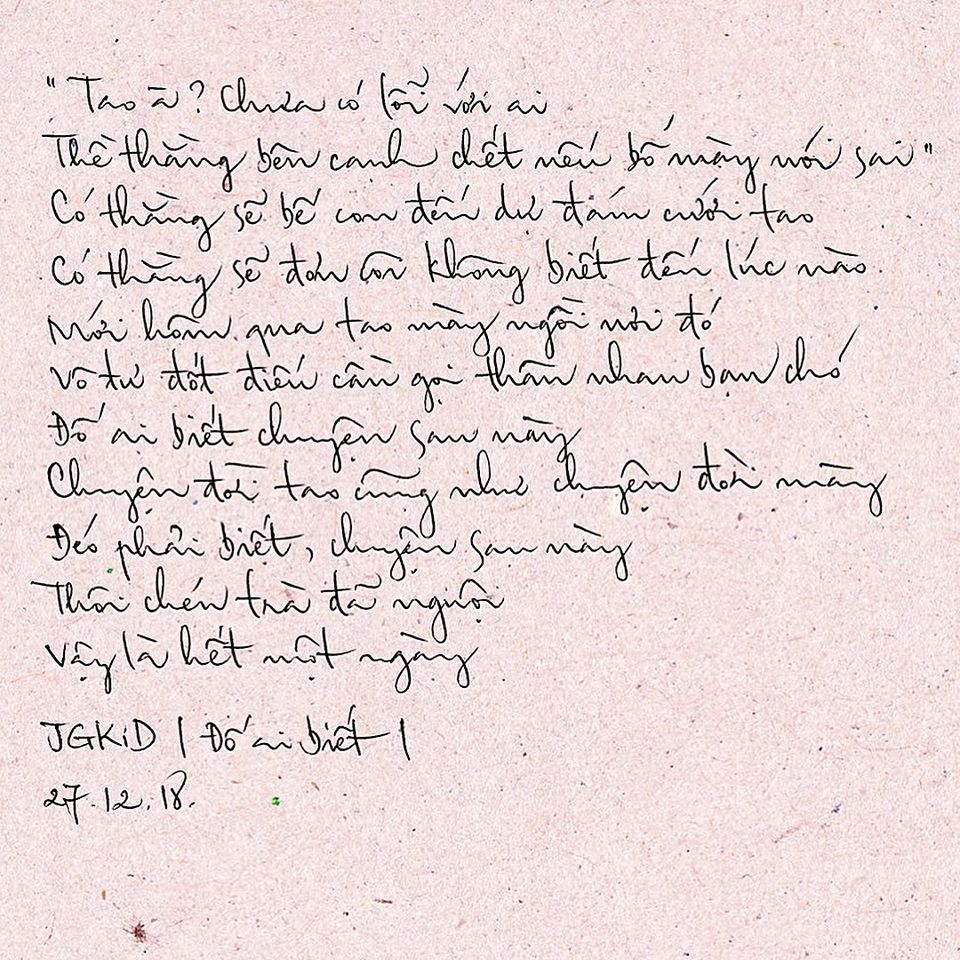 "Tao à? Chưa có lỗi với ai
Thề thằng bên cạnh chết nếu bố mày nói sai"
Có thằng sẽ bế con đến dự đám cưới tao
Có thằng sẽ đơn côi không biết đến lúc nào
Mới hôm qua tao mày ngồi nơi đó
Vô tư đốt điếu cần gọi thân nhau bạn chó
Đố ai biết chuyện sau này
Chuyện đời tao cũng như chuyện đời mày
Đéo phải biết, chuyện sau này
Thôi chén trà đã nguội
Vậy là hết một ngày
JGKiD | Đố ai biết |
27.12.18.